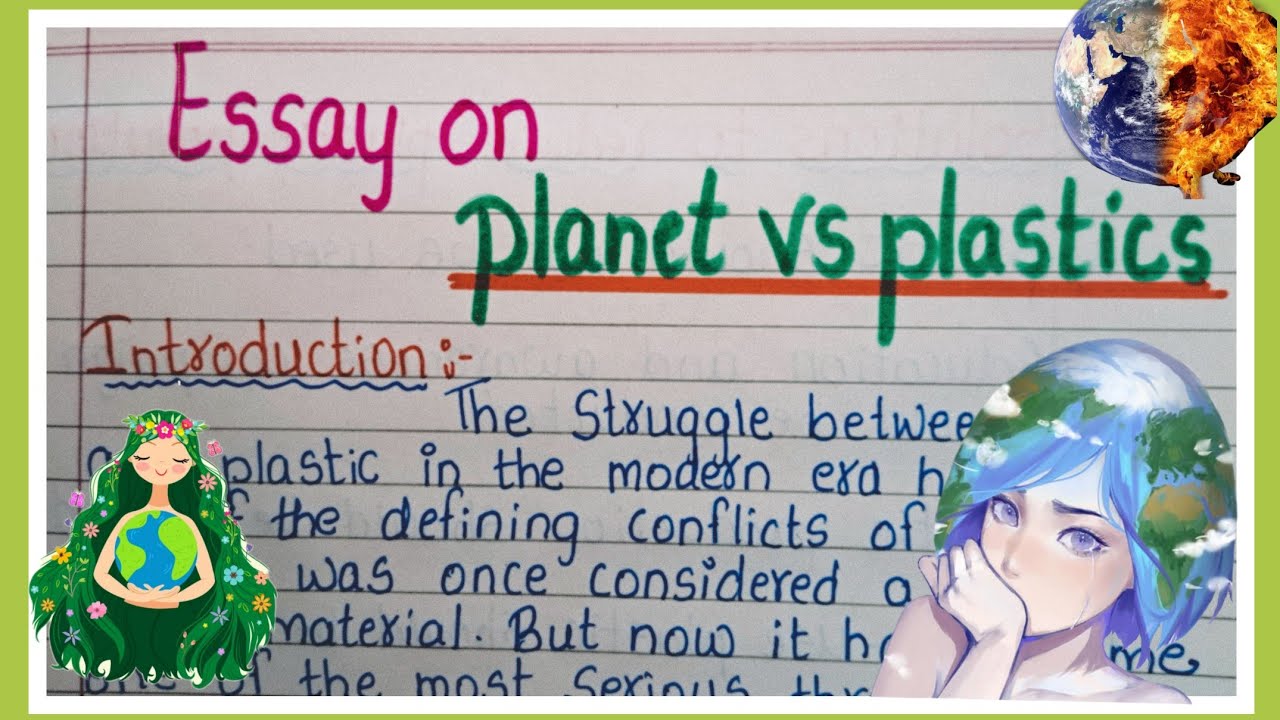 Essay on
planet vs plastics
Introduction :-
The Struggle betwee
plastic in the modern era
the defining conflicts of
was once considered a
material. But now it
one of the most serious